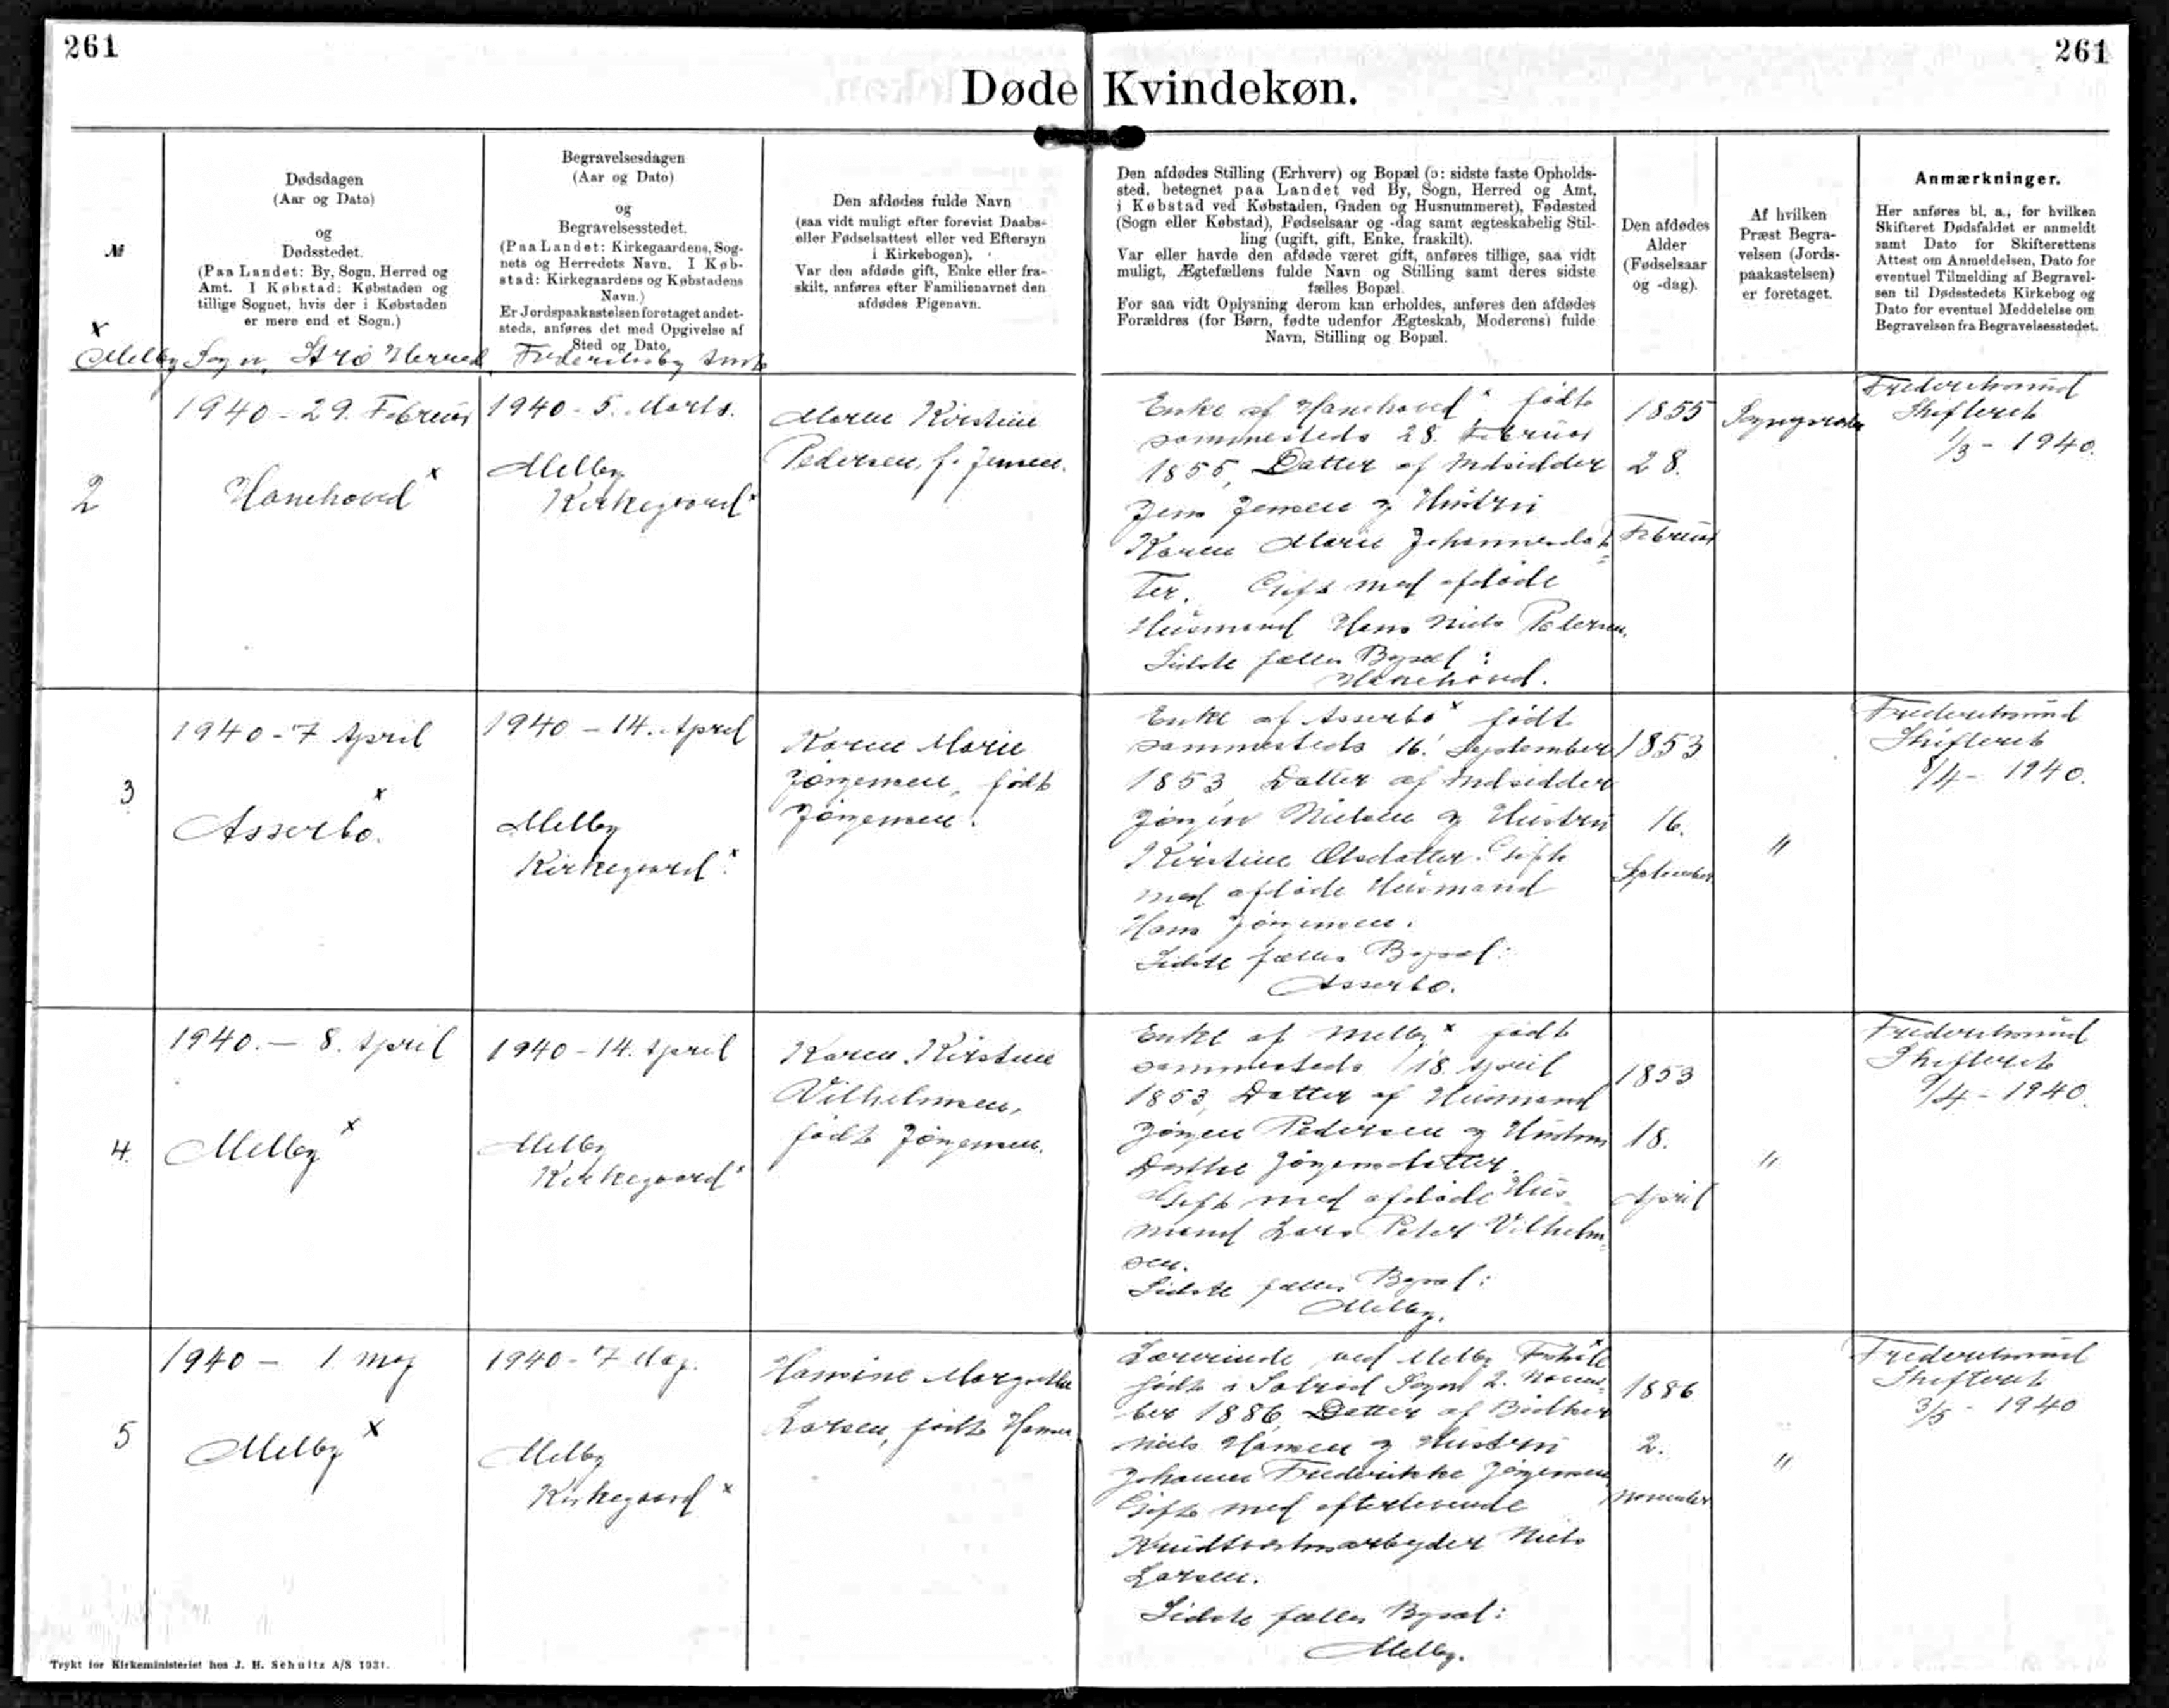 261
261
Døde Kvindekøn.
№
Dødsdagen
(Aar og Dato)
og
Dødsstedet.
(Paa Landet: By, Sogn, Herred og
Amt. I Købstad: Købstaden og
tillige Sognet, hvis der i Købstaden
er mere end et Sogn.)
Begravelsesdagen
(Aar og Dato)
og
Begravelsesstedet.
(Paa Landet: Kirkegaardens, Sog-
nets og Herredets Navn. I Køb-
stad: Kirkegaardens og Købstadens
Navn.)
Er Jordspaakastelsen foretaget andet-
steds, anføres det med Opgivelse af
Sted og Dato.
Den afdødes fulde Navn
(saa vidt muligt efter forevist Daabs-
eller Fødselsattest eller ved Eftersyn
i Kirkebogen).
Var den afdøde gift, Enke eller fra-
skilt, anføres efter Familienavnet den
afdødes Pigenavn.
Den afdødes Stilling (Erhverv) og Bopæl (ɔ: sidste faste Opholds-
sted, betegnet paa Landet ved By, Sogn, Herred og Amt,
i Købstad ved Købstaden, Gaden og Husnummeret), Fødested
(Sogn eller Købstad), Fødselsaar og -dag samt ægteskabelig Stil-
ling (ugift, gift, Enke, fraskilt).
Var eller havde den afdøde været gift, anføres tillige, saa vidt
muligt, Ægtefællens fulde Navn og Stilling samt deres sidste
fælles Bopæl.
For saa vidt Oplysning derom kan erholdes, anføres den afdødes
Forældres (for Børn, fødte udenfor Ægteskab, Moderens) fulde
Navn, Stilling og Bopæl.
Den afdødes
Alder
(Fødselsaar
og -dag).
Af hvilken
Præst Begra-
velsen (Jords-
paakastelsen)
er foretaget.
Anmærkninger.
Her anføres bl. a., for hvilken
Skifteret Dødsfaldet er anmeldt
samt Dato for Skifterettens
Attest om Anmeldelsen, Dato for
eventuel Tilmelding af Begravel-
sen til Dødsstedets Kirkebog og
Dato for eventuel Meddelelse om
Begravelsen fra Begravelsesstedet.
x
Melby Sogn, Strø Herred, Frederiksborg Amt
2
1940 - 29. Februar
Hanehoved x
1940 - 5. Marts.
Melby
Kirkegaard x
Maren Kirstine
Pedersen, f. Jensen.
Enke af Hanehoved x, født
sammesteds 28. Februar
1855, Datter af Indsidder
Jens Jensen og Hustru
Karen Marie Johannesdat=
ter. Gift med afdøde
Husmand Hans Niels Pedersen.
Sidste fælles Bopæl:
Hanehoved.
1855
28.
Februar
Sognepræsten
Frederikssund
Skifteret
1/3 - 1940.
3
1940 - 7 April
Asserbo. x
1940 - 14. April
Melby
Kirkegaard x.
Karen Marie
Jørgensen, født
Jørgensen.
Enke af Asserbo x født
sammesteds 16. September
1853, Datter af Indsidder
Jørgen Nielsen og Hustru
Kirstine Olsdatter. Gift
med afdøde Husmand
Hans Jørgensen.
Sidste fælles Bopæl:
Asserbo.
1853
16.
September
"
Frederikssund
Skifteret
8/4 - 1940.
4.
1940. - 8. April
Melby x
1940 - 14. April
Melby
Kirkegaard x
Karen Kirstine
Vilhelmsen,
født Jørgensen.
Enke af Melby x født
sammesteds 18. April
1853, Datter af Husmand
Jørgen Pedersen og Hustru
Dorthe Jørgensdatter.
Gift med afdøde Hus-
mand Lars Peter Vilhelm-
sen.
Sidste fælles Bopæl:
Melby.
1853
18.
April
"
Frederikssund
Skifteret
9/4 - 1940.
5
1940 - 1. Maj
Melby x
1940 - 7 Maj.
Melby
Kirkegaard x
Hansine Margrethe
Larsen, født Hansen
Lærerinde ved Melby
født i Solrød Sogn 2. Novem-
ber 1886, Datter af Bødker
Niels Hansen og Hustru
Johanne Frederikke Jørgensen
Gift med efterlevende
Krudtværksarbejder Niels
Larsen.
Sidste fælles Bopæl:
Melby.
1886
2.
November
"
Frederikssund
Skifteret
3/5 - 1940
Trykt for Kirkeministeriet hos J. H. Schultz A/S 1931.